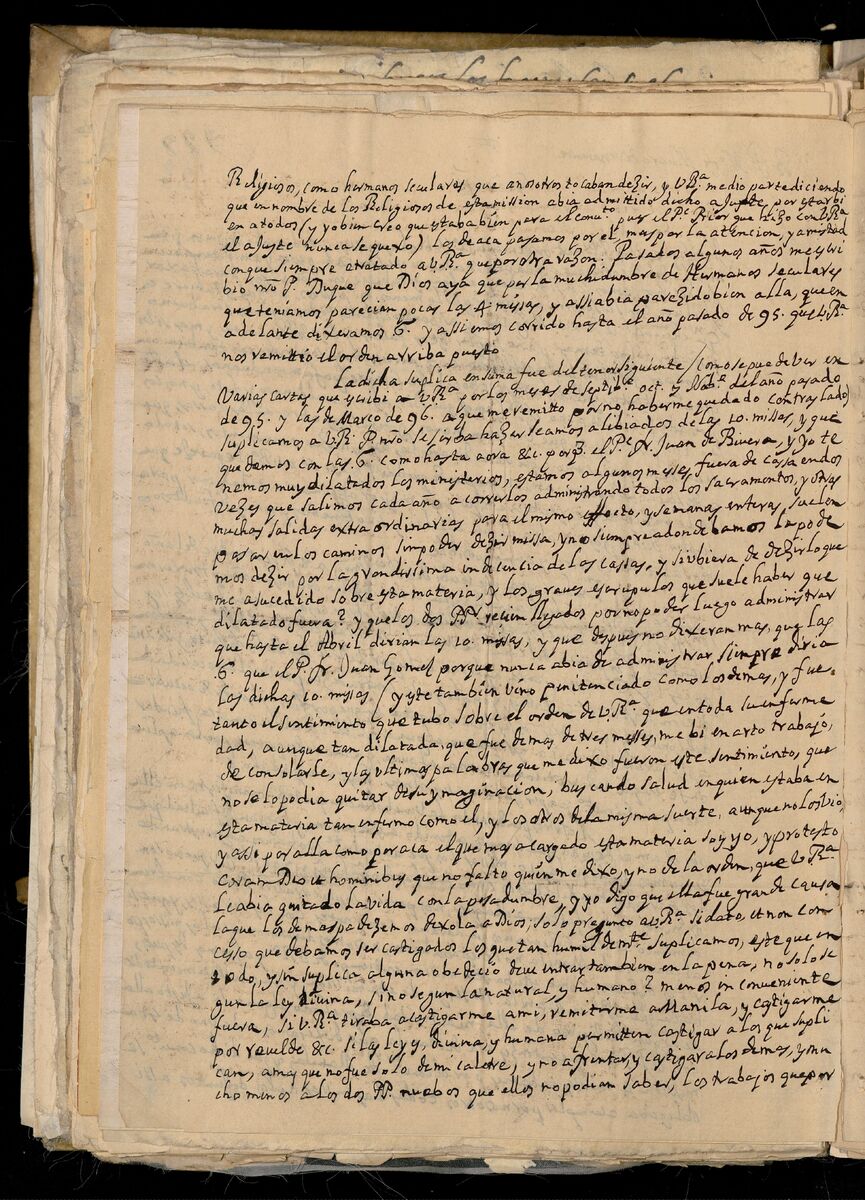 Religiosos, como hermanos seculares que a nosotros tocaban dezir, y V.Rª. medio parte diciendo
que en nombre de los Religiosos de esta mission abia admittido dicho ajuste, por estar bi
en a todos (y yo bien creo que estaba bien para el convto. pues el Pe. Prior que hizo con V.Rª
el ajuste nunca se quexo) los de aca pasamos por el, mas por la atencion, y amistad
con que siempre e tratado a V.Rª. que por otra razon. Pasados algunos años me scri
bio nro P. Duque que Dios aya que por la muchidumbre de Hermanos seculares
que teniamos parecian pocas las 4. missas, y assi abia parezido bien alla, que en
adelante dixeramos 6. y assi emos corrido hasta el año pasado de 95. que V.Rª
nos remittio el orden arriba puesto
La dicha suplica en suma fue del tenor siguiente / como se puede ver en
varias cartas que escribi a V.Rª por los meses de septbre. oct. y Nobe. del año pasado
de 95. y las de Marco de 96. a que me remitto por no haberme quedado con traslado)
suplicamos a V.R. P. nro se sirba hazer seamos alibiados de las 10. missas, y que
quedemos con las 6. como hasta aora &c. porq. el Pe. fr. Juan de Rivera, y yo te
nemos muy dilatados los ministerios, estamos algunos meses fuera de cassa en dos
vezes que salimos cada año a correrlos administrando todos los sacramentos, y otras
muchas salidas extraordinarias para el mismo effecto, y semanas enteras suelen
pasar en los caminos sin poder dezir missa, y no siempre a donde bamos la pode
mos dezir por la grandissima indecencia de las cassas, y si ubiera de dezir lo que
me a sucedido sobre esta materia, y los graves escrupulos que suele haber que
dilatado fuera? y que los dos PPs. recien llegados por no poder luego administrar
que hasta el Abril dirian las 10. missas, y que despues no dixeran mas, que las
6. que el P. fr. Juan Gomes porque nunca abia de administrar, siempre diria
las dichas 10. missas (y este tambien vino penitenciado como los demas, y fue
tanto el sentimiento que tubo sobre el orden de V.Rª. que en toda su enferme
dad, aunque tan dilatada, que fue de mas de tres messes, me bi en arto trabajo,
de consolarle, y las ultimas palabras que me dixo fueron este sentimiento, que
no se lo podia quitar de su ymaginacion, buscando salud en quien estaba en
esta materia tan enfermo como el, y los otros de la misma suerte, aunque no los bio,
y assi por alla como por aca el que mas a cargado esta materia soy yo, y protesto
coram Deo et hominibus que no falto quien me dixo, y no de la orden, que V.Rª.
le abia quitado la vida con la pesadumbre, y yo digo que ella fue grande causa
la que los demas padezemos dexola a Dios, solo pregunto a V.Rª. si dato, et non con
cesso que debamos ser castigados los que tam humildemte. suplicamos, este que en
todo, y sin suplica alguna obedeció deve entrar tambien en la pena, no solo se
gun la ley divina, sino segun la natural, y humano? menos inconveniente
fuera, si V.Rª tiraba a castigarme a mi, remitirme a Manila, y castigarme
por revelde &c. si las leyes, divina, y humana permitten castigar a los que supli
can, a mas que no fue solo de mi caletre, y no afrentar, y castigar a los demas, y mu
cho menos a los dos PP. nuebos que ellos no podian saber, los trabajos que por